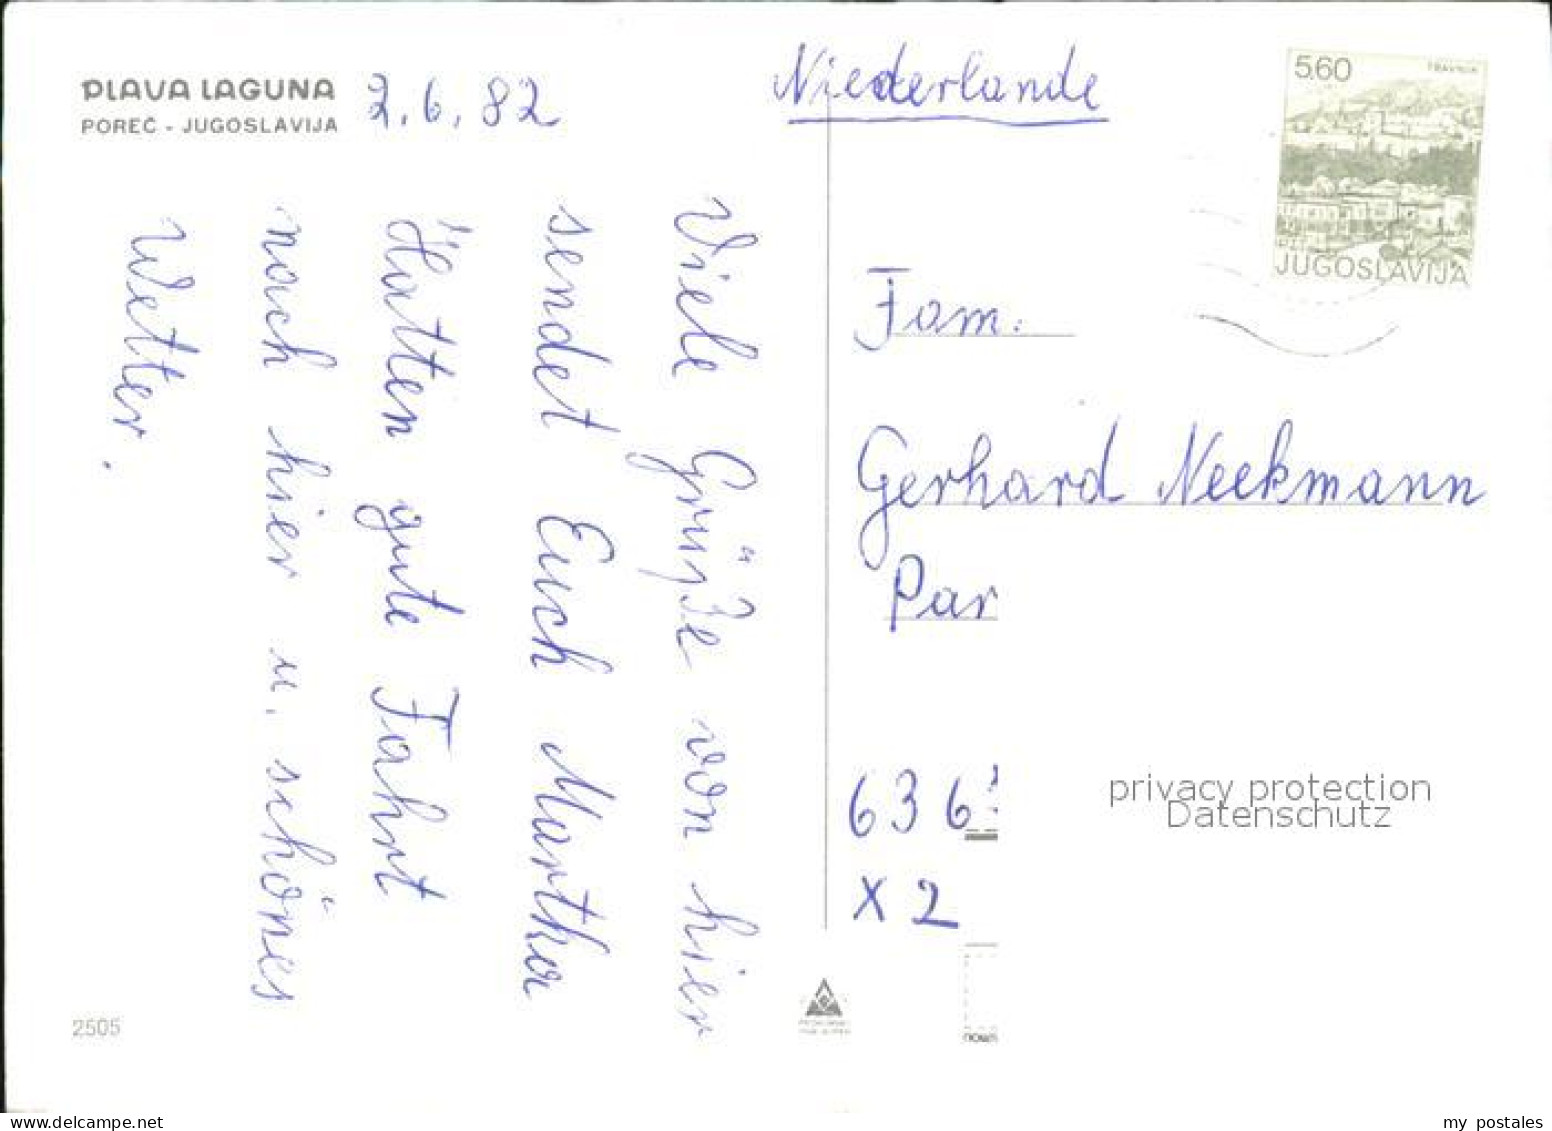 PLAVA LAGUNA
POREČ - JUGOSLAVIJA
2.6.82
Viele Grüße von hier
sendet Euch Martha
Hatten gute Fahrt
nach hier u. schönes
Wetter.
2505
Niederlande
5.60
TRAVNIK
JUGOSLAVIJA
Fam.
Gerhard Neekmann
Par
636
X 2
privacy protection
Datenschutz
www.delcampe.net
my postales